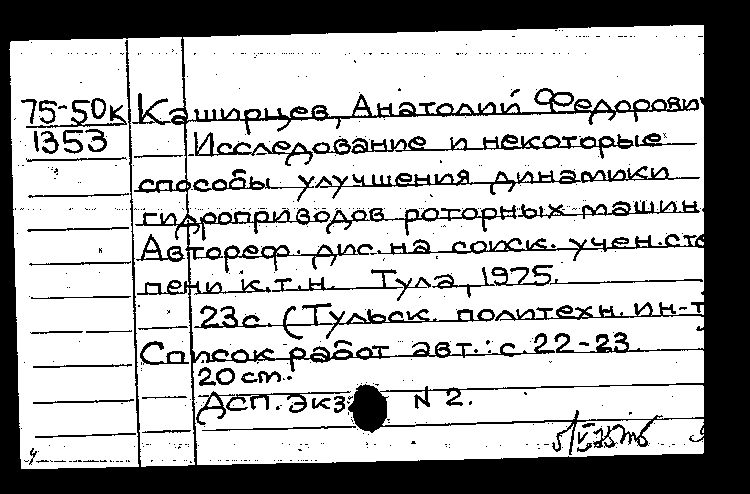 75-50к Каширцев, Анатолий Федорович
1353 Исследование и некоторые
способы улучшения динамики
гидроприводов роторных машин.
Автореф. дис. на соиск. учен. сте
пени к.т.н. Тула, 1975.
23с. (Тульск. политехн. ин-т
Список работ авт.: с. 22-23.
20 см.
Дсп. экз. N 2.